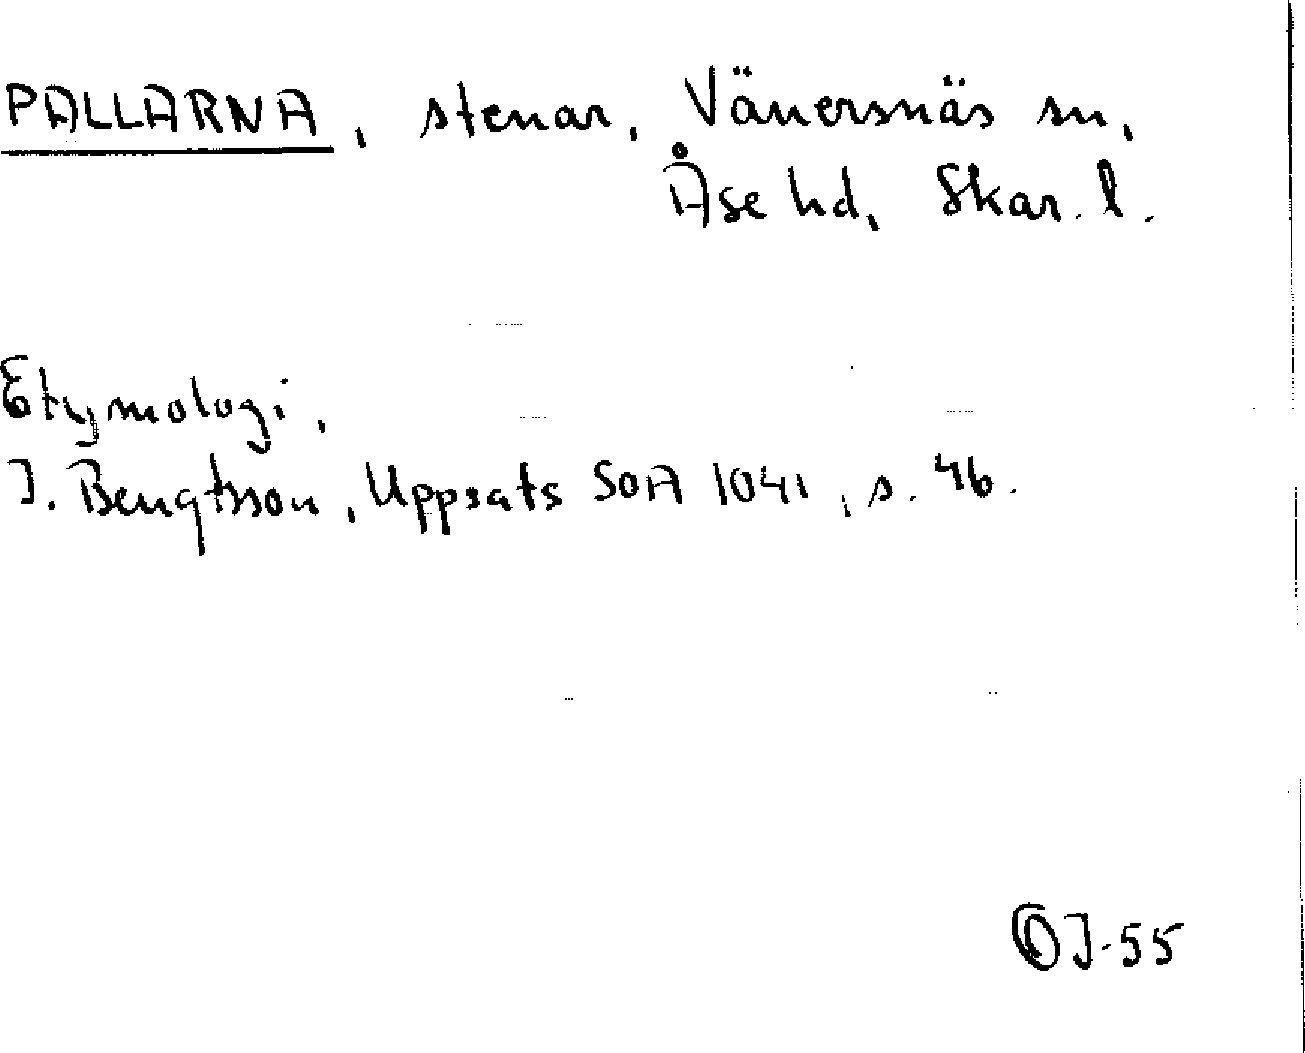 PALLARNA, stenar, Vänersnäs sn,
Åse hd, Skar. l.
Etymologi,
J. Bengtsson, Uppsats SOA 1041, s. 46.
OJ-55